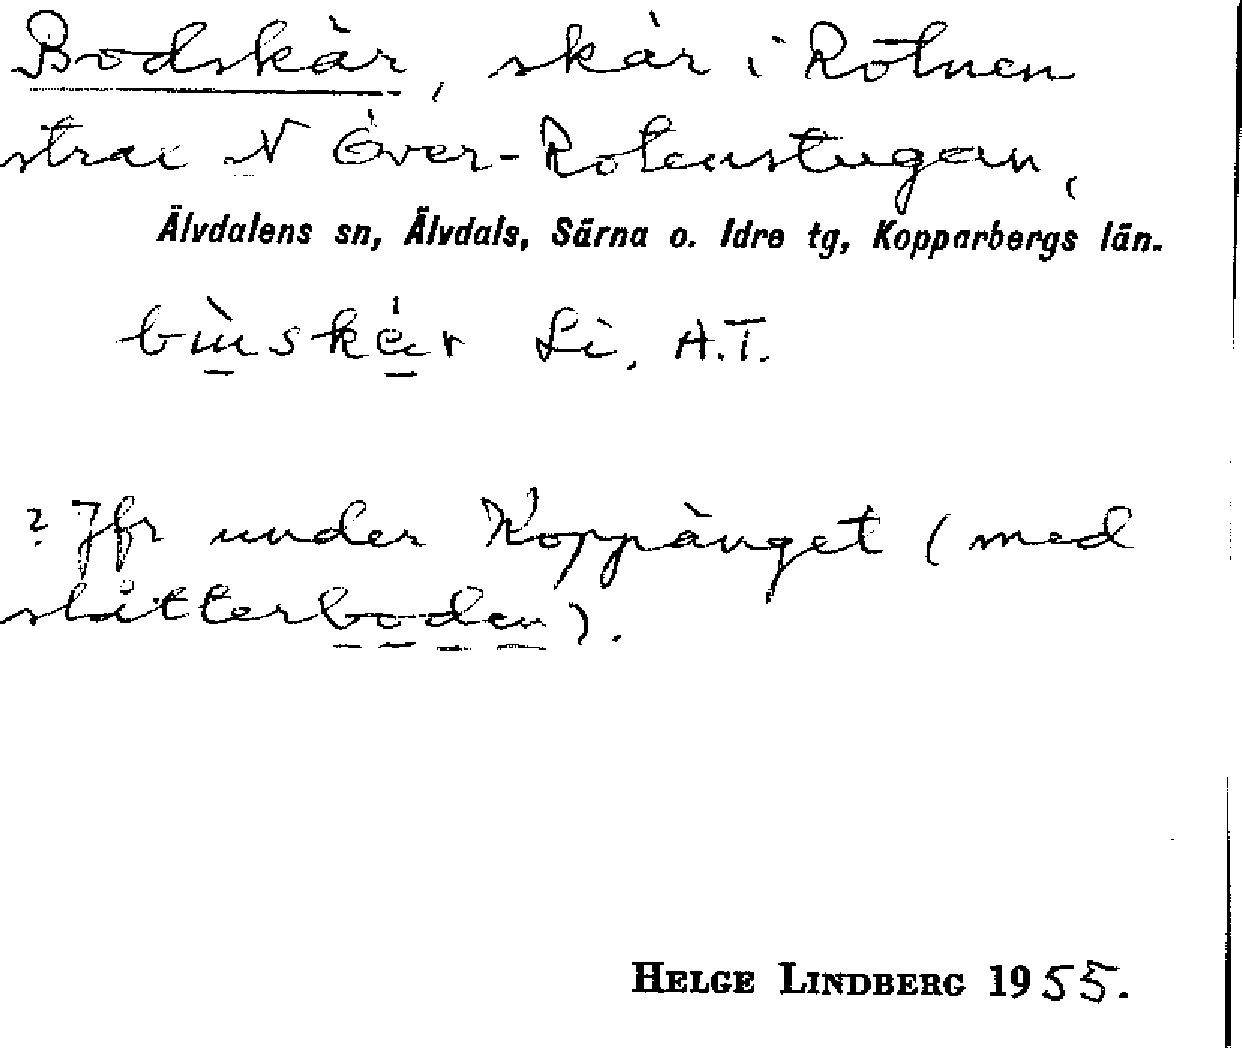 Bodskär, skär i Rötnen
strax N Över-Rotenstugan,
Älvdalens sn, Älvdals, Särna o. Idre tg, Kopparbergs län.
Li, A.T.
? Jfr under Koppänget (med
slåtterboden).
HELGE LINDBERG 1955.